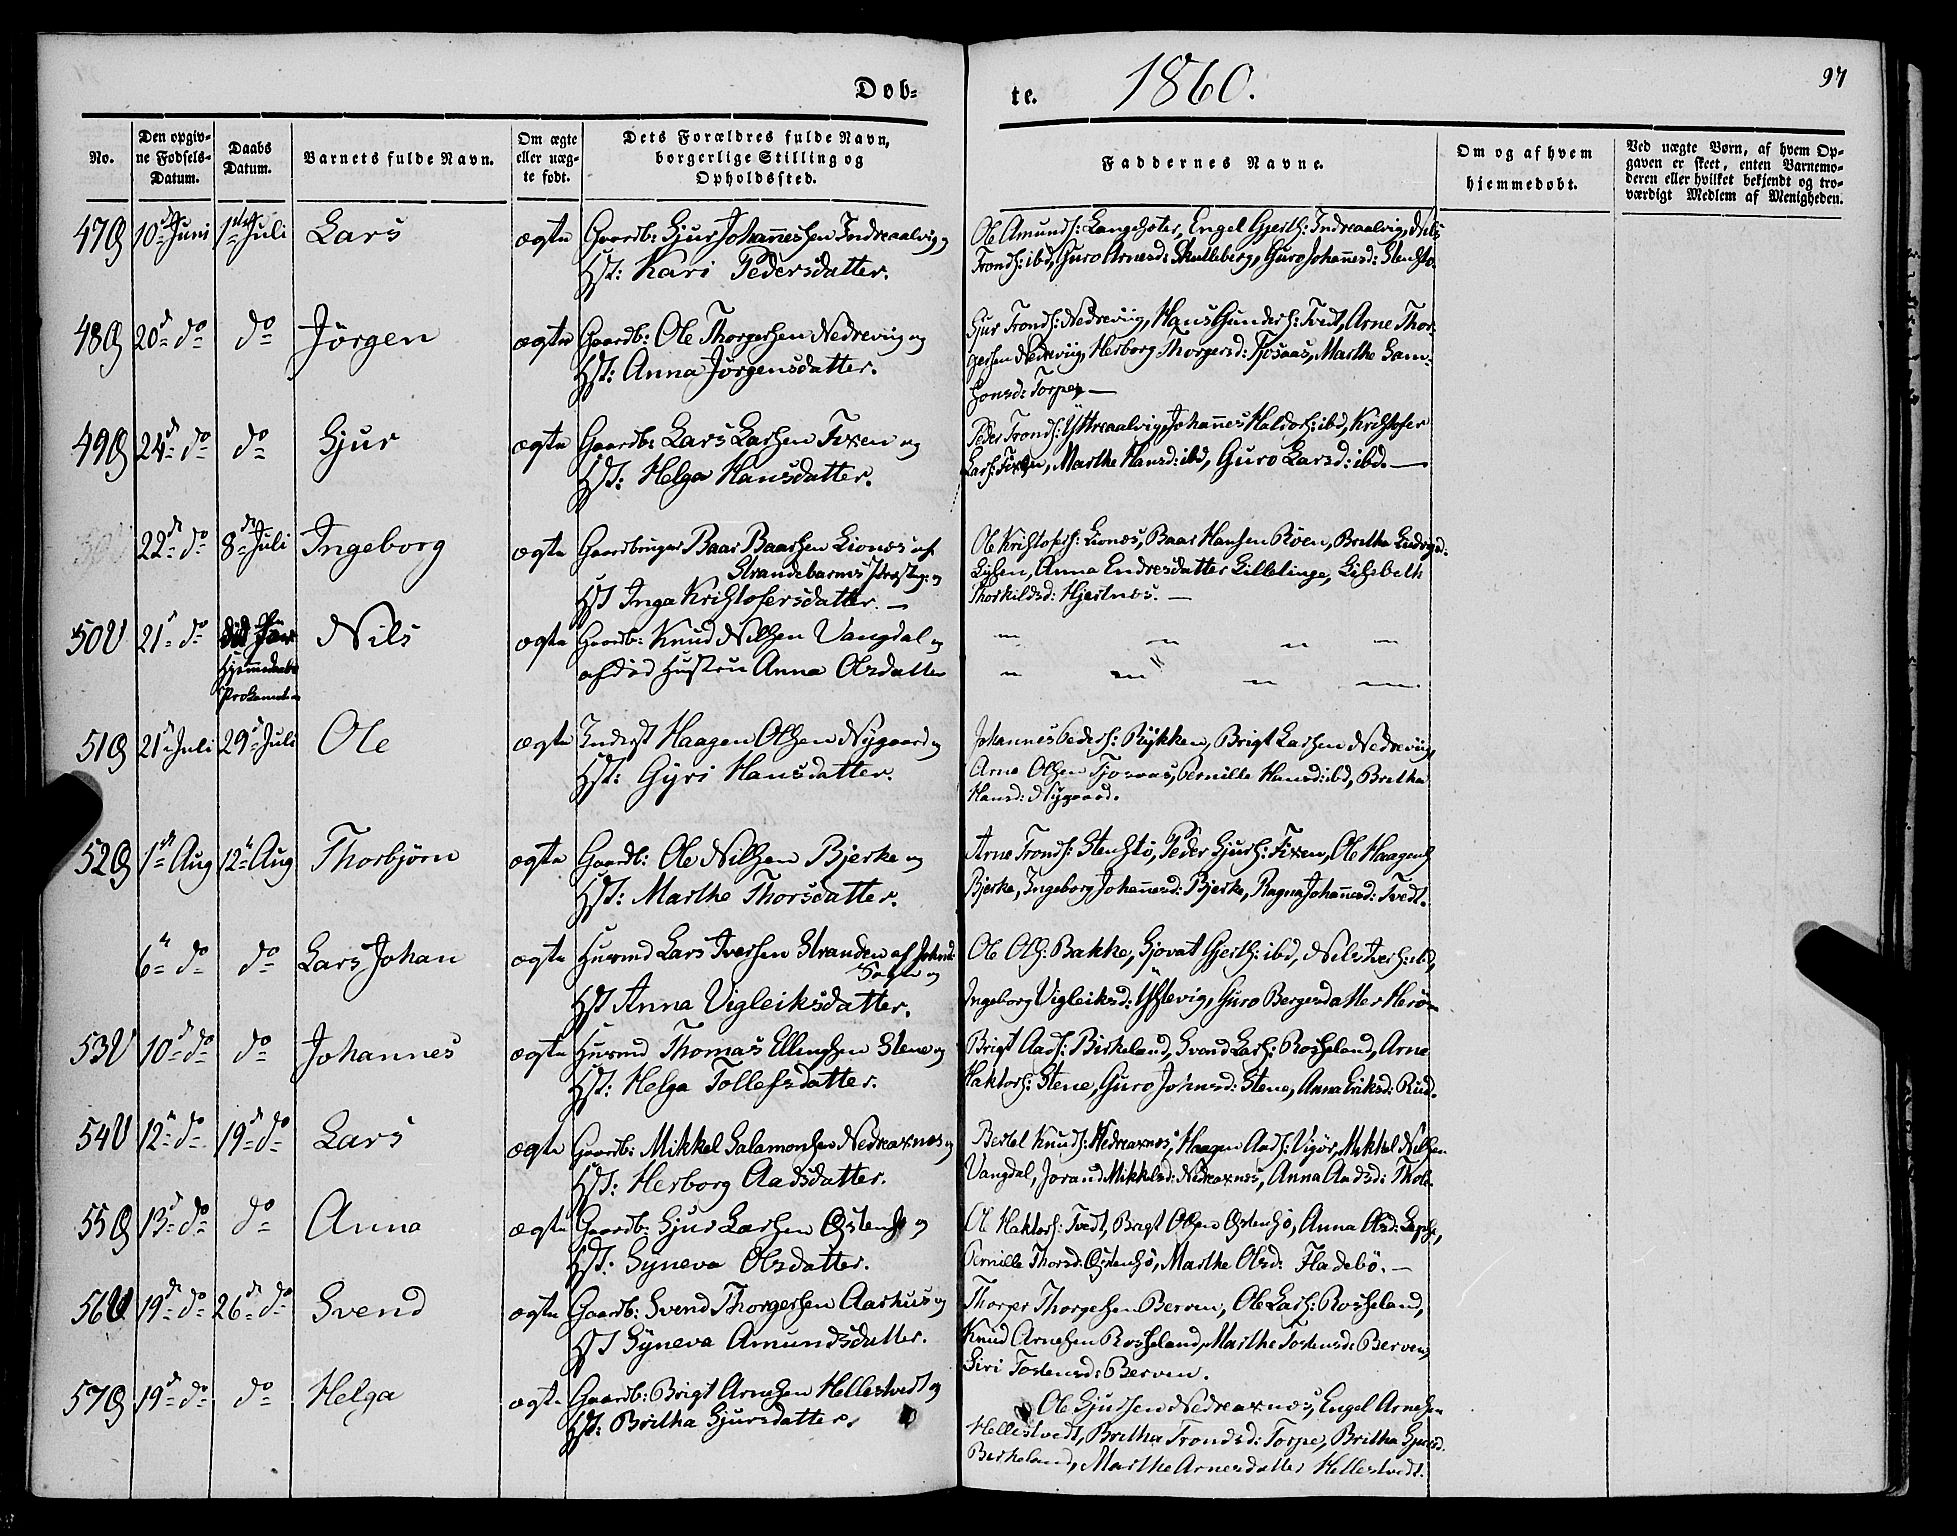 Døb-
te. 1860.
97
No.
Den opgiv-
ne Fødsels-
Datum.
Daabs
Datum.
Barnets fulde Navn.
Om ægte
eller uæg-
te født.
Dets Forældres fulde Navn,
borgerlige Stilling og
Opholdssted.
Faddernes Navne.
Om og af hvem
hjemmedøbt.
Ved uægte Børn, af hvem Op-
gaven er skeet, enten Barnemo-
deren eller hvilket bekjendt og tro-
værdigt Medlem af Menigheden.
47 10 Juni 1ste Juli Lars ægte Gaardb: Sjur Johannessen Indreaalvig og
Hst: Kari Pedersdatter.
Ole Amunds: Langesæter, Engel Gjerts: Indreaalvig, Nils
Tronds: ibd, Guro Arnesd: Skutleberg, Guro Johannesd: Stensto.
48 20 do do Jörgen ægte Gaardb: Ole Thorgersen Nedreviig og
Hst: Anna Jörgensdatter.
Sjur Tronds: Nedreviig, Hans Gunders: Tvedt, Arne Thor-
gersen Nedreviig, Herborg Thorgersd: Tjosaas, Marthe Sam-
sonsd: Torpe, —
49 24 do do Sjur ægte Gaardb: Lars Larsen Fixen og
Hst: Helga Hansdatter.
Peder Tronds: Yttreaalvig, Johannes Haldors: ibd, Kristofer
Lars: Fixen, Marthe Hansd: ibd, Guro Larsd: ibd. —
22 do 8 Juli Ingeborg ægte Gaardbruger Baar Baarsen Lionæs af
Strandebarms Præsteg: og
Hst Inga Kristofersdatter. —
Ole Kristofers: Lionæs, Baar Hansen Röen, Britha
Anna Endresdatter Lillelinge, Lisbeth
Thorkildsd: Hjertnæs. —
50U 21 do
Hjemmedaabs
Nils ægte Gaardb: Knud Nilsen Vangdal og
afdöd Hustru Anna Olsdatter
51 21 Juli 29 Juli Ole ægte Inderst Haagen Olsen Nygaard og
Hst: Gyri Hansdatter.
Johannes Peders: Rykken, Brigt Larsen Nedreviig,
Arne Olsen Tjosaas, Pernille Hansd: ibd, Britha
Hansd: Nygaard.
52 1 Aug 12 Aug Thorbjörn ægte Gaardb: Ole Nilsen Bjerke og
Hst: Marthe Thorsdatter.
Arne Tronds: Stenstö, Peder Sjurs: Fixen, Ole Haagens
Bjerke, Ingeborg Johannesd: Bjerke, Ragna Johannesd: Tvedt.
6 do do Lars Johan ægte Husmd Lars Iversen Stranden af
Sogn og
Hst Anna Vigleiksdatter.
Ole Ols: Bakke, Sjovat Gjerts: ibd, Nils Ivers: ibd,
Ingeborg Vigleiksd: Guro Bergersdatter
53U 10 do do Johannes ægte Husmd Thomas Ellingsen Stene og
Hst: Helga Tollefsdatter.
Brigt Aads: Birkeland, Svend Lars: Rosseland, Arne
Haktors: Stene, Guro Johnsd: Stene, Anna Eriksd: Rud.
54U 12 do 19 do Lars ægte Gaardb: Mikkel Salamonsen Nedreaxnæs og
Hst: Herborg Aadsdatter.
Bertel Knuds: Nedreaxnæs, Haagen Aads: Vigör, Mikkel Nilsen
Vangdal, Jorand Mikkelsd: Nedreaxnæs, Anna Aadsd: Thole.
55 13 do do Anna ægte Gaardb: Sjur Larsen Östensö og
Hst: Syneva Olsdatter.
Ol Haktors: Tvedt, Brigt Olsen Östensö, Anna Olsd:
Pernille Thorsd: Östensö, Marthe Olsd: Fladebö. —
56U 19 do 26 do Svend ægte Gaardb: Svend Thorgersen Aarhus og
Hst Syneva Amundsdatter.
Thorger Thorgersen Berven, Ole Lars: Rosseland,
Knud Arnesen Rosseland, Marthe Tostensd: Berven,
Siri Tostensd: Berven.
57 19 do do Helga ægte Gaardb: Brigt Arnesen Hellestvedt og
Hst: Britha Sjursdatter.
Ole Sjursen Nedreaxnæs, Engel Arnesen
Hellestvedt, Britha Trondsd: Torpe, Britha Sjursd:
Birkeland, Marthe Arnesdatter Hellestvedt.